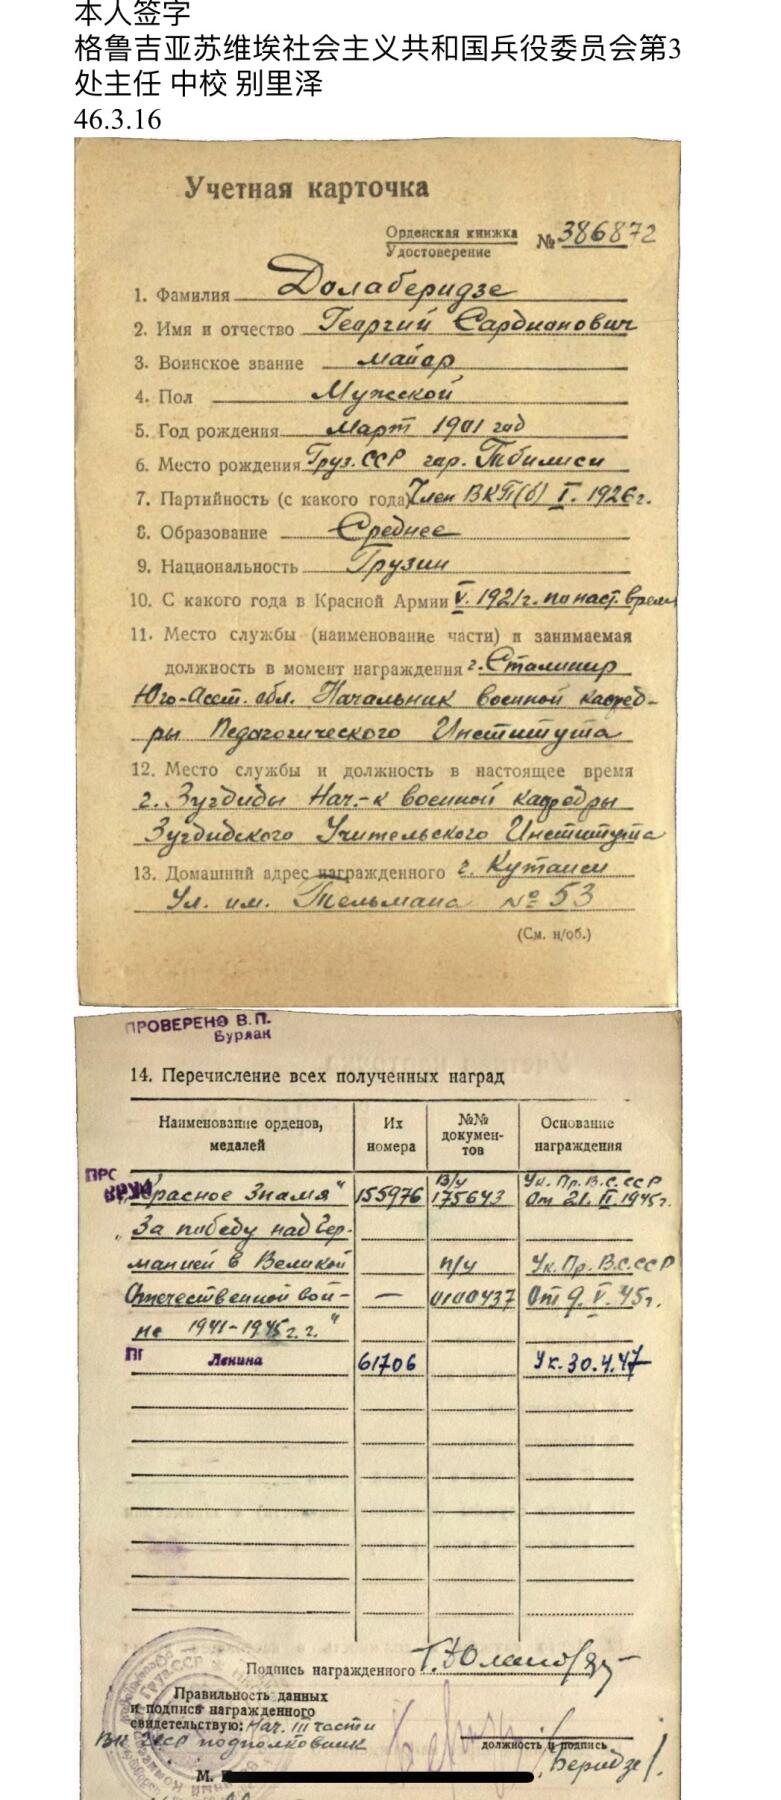 本人签字
格鲁吉亚苏维埃社会主义共和国兵役委员会第3
处主任 中校 别里泽
46.3.16
Учетная карточка
Орденская книжка
Удостоверение
№ 386872
1. Фамилия Долаберидзе
2. Имя и отчество Георгий Сардионович
3. Воинское звание майор
4. Пол Мужской
5. Год рождения Март 1901 год
6. Место рождения Груз.ССР гор. Тбилиси
7. Партийность (с какого года) Член ВКП(б) I. 1926г.
8. Образование Среднее
9. Национальность Грузин
10. С какого года в Красной Армии V. 1921г. по наст. время
11. Место службы (наименование части) и занимаемая
должность в момент награждения г. Сталинир
Юго-Осет. обл. Начальник военной кафед-
ры Педагогического Института
12. Место службы и должность в настоящее время
г. Зугдиди Нач.-к военной кафедры
Зугдидского Учительского Института
13. Домашний адрес награжденного г. Кутаиси
Ул. им. Тельмана № 53
(См. н/об.)
ПРОВЕРЕНО В.П.
Бурлак
14. Перечисление всех полученных наград
Наименование орденов, медалей
Их номера
№№ докумен-тов
Основание награждения
"Красное Знамя" 155976 в/у 175643 Ук. Пр. В.С. ССР От 21. II. 1945г.
"За победу над Гер-
манией в Великой п/у Ук. Пр. В.С. ССР
Отечественной вой- — 0100437 От 9. V. 45г.
не 1941-1945 г.г."
Ленина 61706 Ук. 30.4.47
Подпись награжденного
Правильность данных
и подписи награжденного
свидетельствую: Нач. III части
ВК ГССР подполковник
должность и подпись
/Беридзе/.
М.